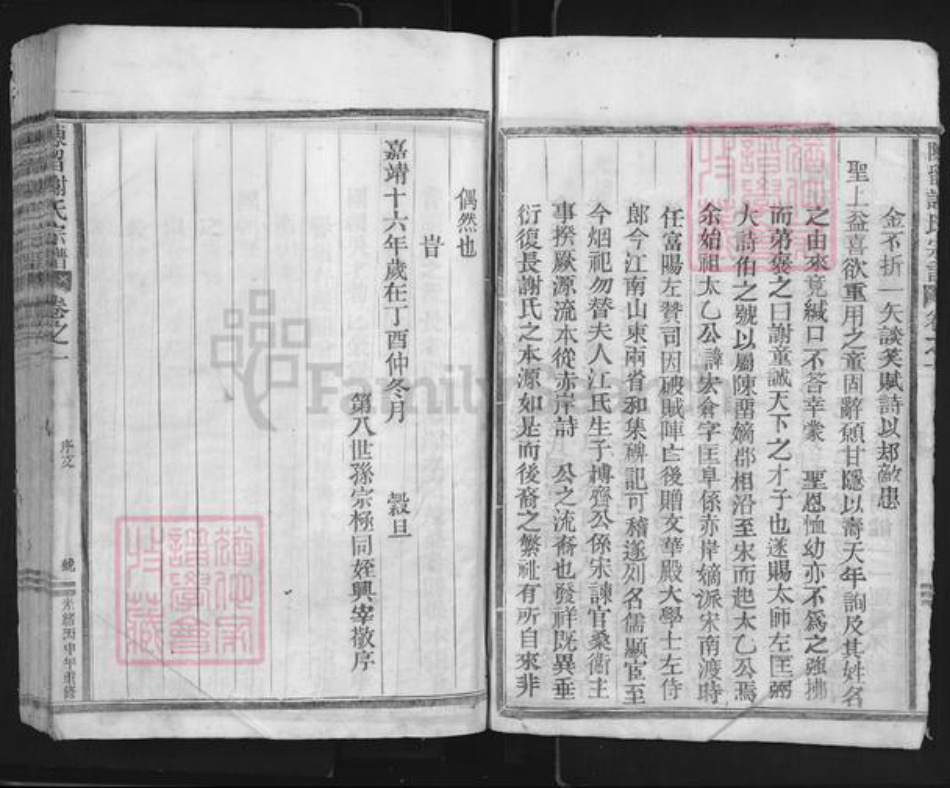 金不折一矢談笑賦詩以却敵患
聖上益喜欲重用之童固辭願甘隱以壽天年詢及其姓名
之由來竟緘口不答幸蒙 聖恩恤幼亦不為之強拂
而弟褒之曰謝童誠天下之才子也遂賜太師左匡弼
大詩伯之號以屬陳留嫡郡相沿至宋而起太乙公焉
余始祖太乙公諱太倉字匡阜係赤岸嫡派宋南渡時
任富陽左贊司因破賊陣亡後贈文華殿大學士左侍
郎今江南山東兩省和集碑記可稽遂列名儒顯宦至
今烟祀勿替夫人江氏生子榑齊公係宋諫官桑衛主
事揆厥源流本從赤岸詩 公之流裔也發祥既異垂
衍復長謝氏之本源如是而後裔之繁祉有所自來非
偶然也
旹
嘉靖十六年歲在丁酉仲冬月 穀旦
第八世孫宗極同姪興宰敬序
陳留謝氏宗譜 卷之一
序文
光緒丙申年重修
FamilySearch